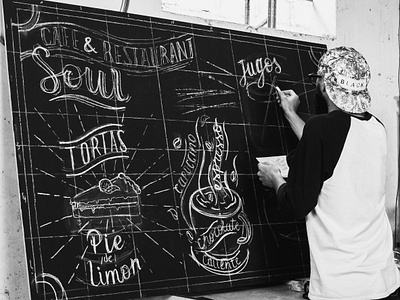 CAFE & RESTAURANT
Soul
TORTAS
Pie
de
limon
Jugos
capuccino
espresso
chocolate
caliente
BLACK